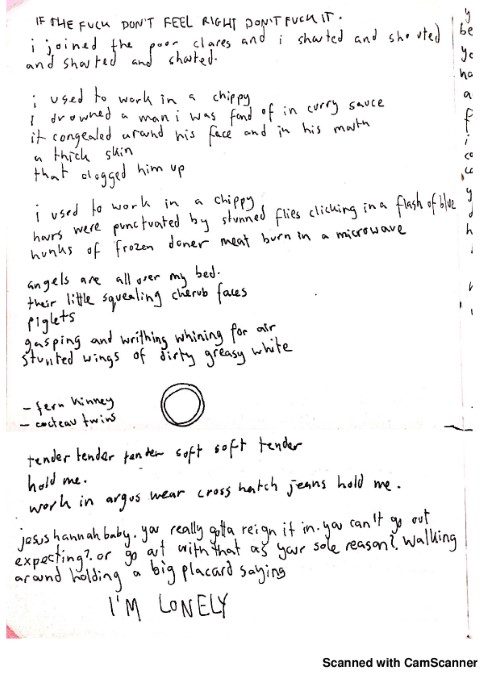 IF THE FUCK DON'T FEEL RIGHT DON'T FUCK IT.
i joined the poor clares and i shouted and shouted
and shouted and shouted.
i used to work in a chippy
i drowned a man i was fond of in curry sauce
it congealed around his face and in his mouth
a thick skin
that clogged him up
i used to work in a chippy
hours were punctuated by stunned flies clicking in a flash of blue
hunks of frozen doner meat burn in a microwave
angels are all over my bed.
their little squealing cherub faces
piglets
gasping and writhing whining for air
stunted wings of dirty greasy white
- cocteau twins
tender tender tender soft soft tender
hold me.
work in argos wear cross hatch jeans hold me.
jesus hannah baby. you really gotta reign it in. you can't go out
expecting?. or go out with that as your sole reason?. walking
around holding a big placard saying
I'M LONELY
Scanned with CamScanner